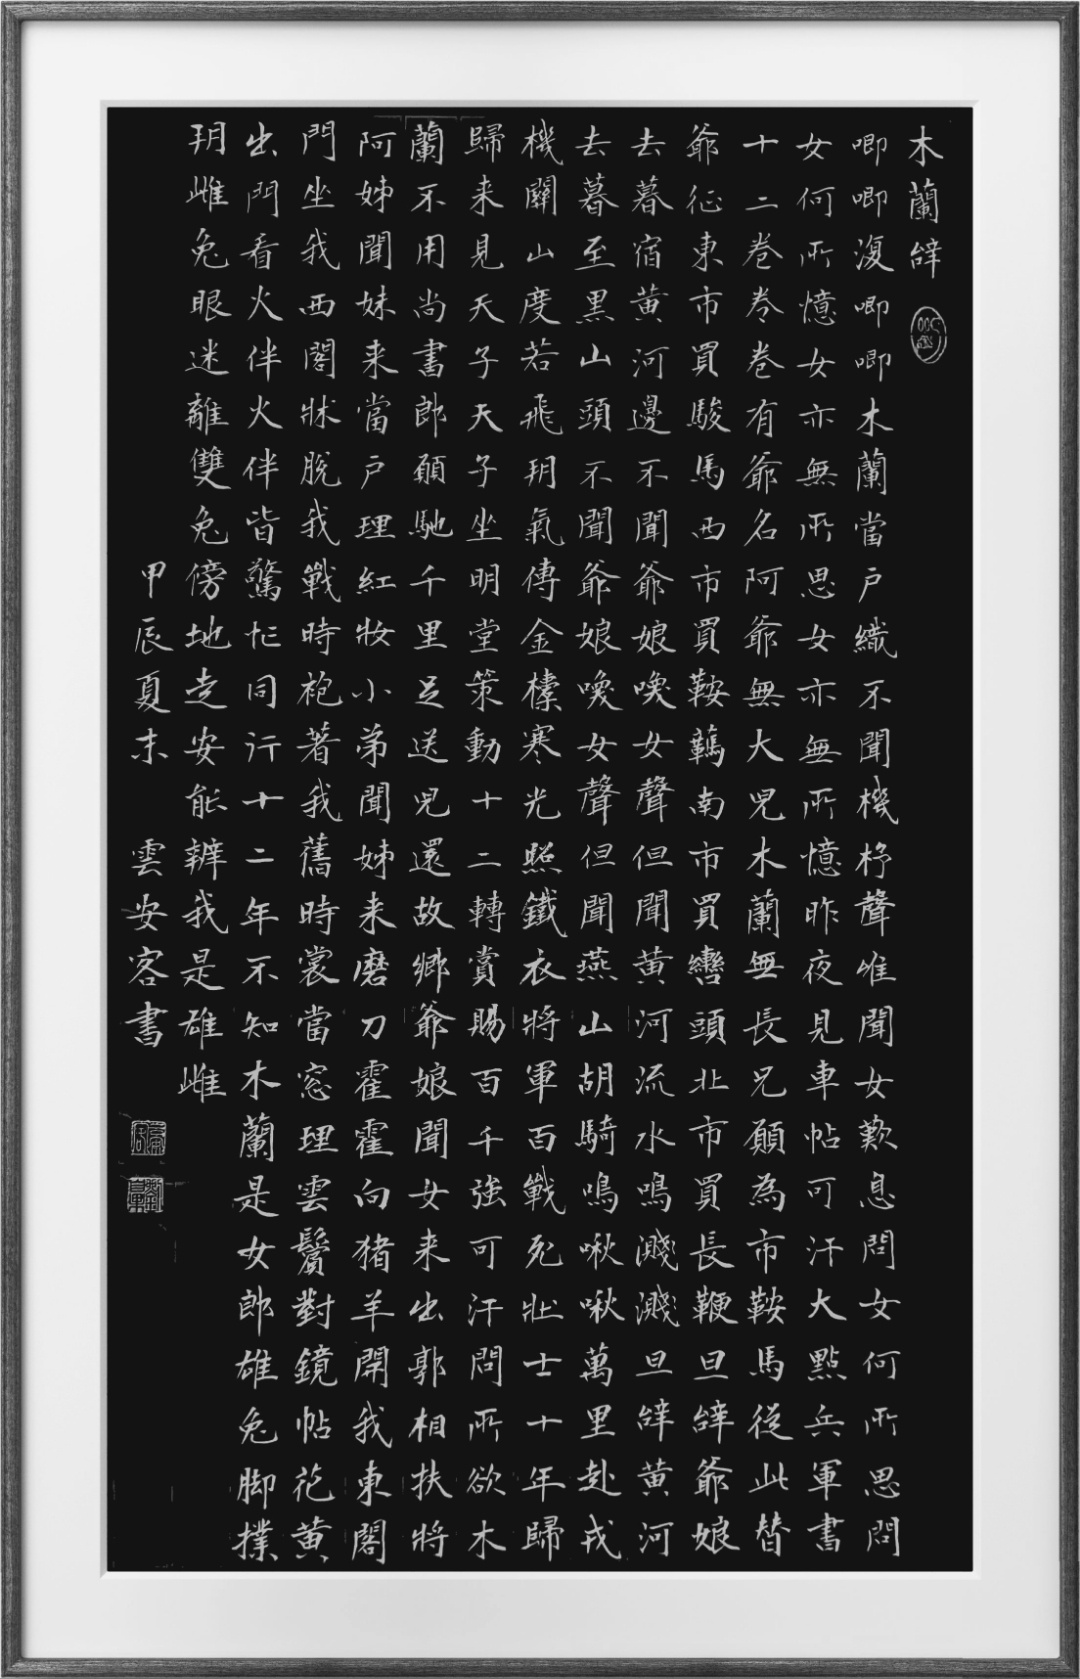 木蘭辭
唧唧復唧唧木蘭當戶織不聞機杼聲唯聞女歎息問女何所思問
女何所憶女亦無所思女亦無所憶昨夜見車帖可汗大點兵軍書
十二卷卷卷有爺名阿爺無大兒木蘭無長兄願為市鞍馬從此替
爺征東市買駿馬西市買鞍韉南市買轡頭北市買長鞭旦辭爺娘
去暮宿黃河邊不聞爺娘喚女聲但聞黃河流水鳴濺濺旦辭黃河
去暮至黑山頭不聞爺娘喚女聲但聞燕山胡騎鳴啾啾萬里赴戎
機關山度若飛朔氣傳金柝寒光照鐵衣將軍百戰死壯士十年歸
歸来見天子天子坐明堂策動十二轉賞賜百千強可汗問所欲木
蘭不用尚書郎願馳千里足送兒還故鄉爺娘聞女来出郭相扶將
阿姊聞妹来當戶理紅妝小弟聞姊来磨刀霍霍向猪羊開我東閣
門坐我西閣牀脫我戰時袍著我舊時裳當窓理雲鬢對鏡帖花黃
出門看火伴火伴皆驚忙同行十二年不知木蘭是女郎雄兔脚撲
朔雌兔眼迷離雙兔傍地走安能辨我是雄雌
甲辰夏末 雲安客書